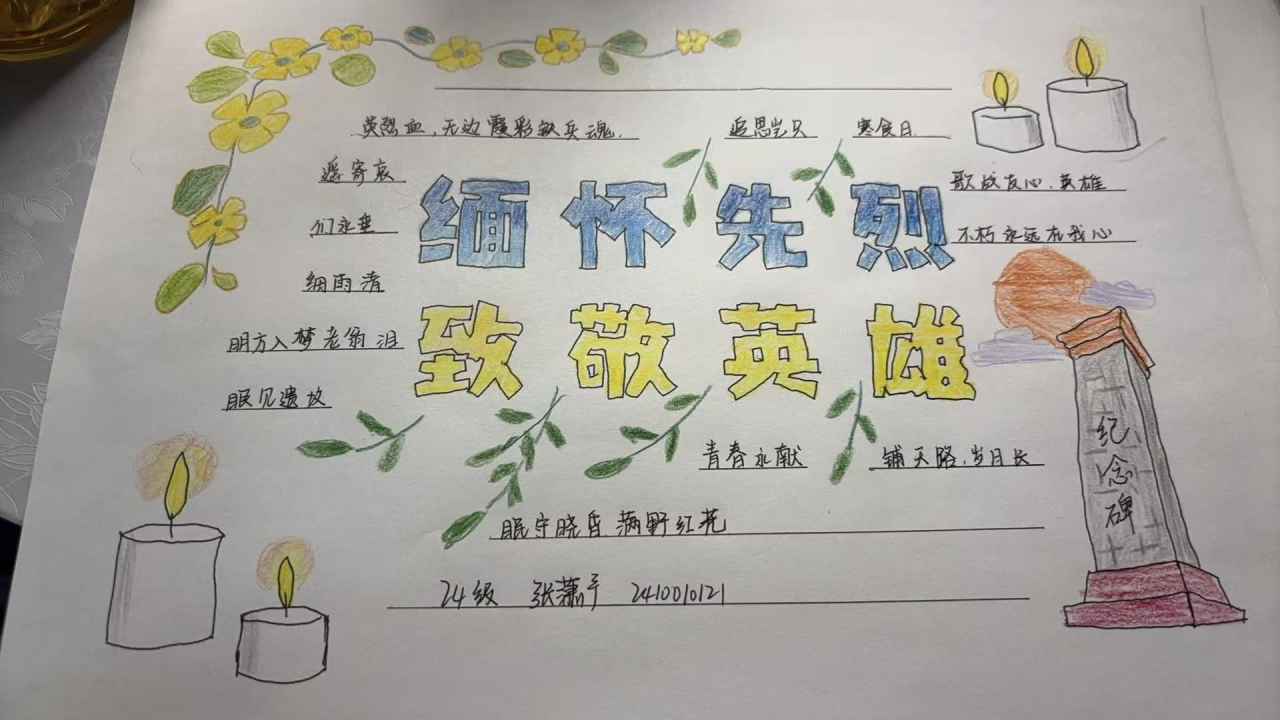 英烈血，无边霞彩铸兵魂．
追思岂只 寒食日．
遥寄哀
们永垂
细雨清
明方入梦老翁泪
眠冗遗故
缅怀先烈
歌战友心．英雄
不朽永远在我心
致敬英雄
纪念碑
青春永献 铺天路．岁月长
眠守晓昏．满野红花
24级 张萧予 2410010121